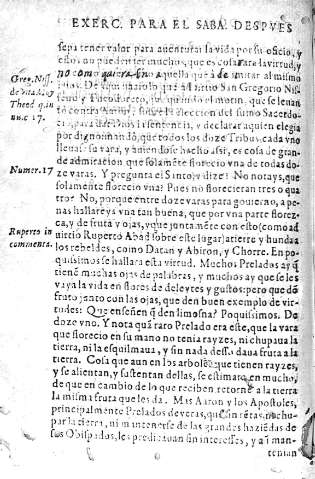 EXERC. PARA EL SABA. DESPVES
sepa tener valor para auenturar la vida por su oficio, y
esto no pueden ser muchos, que es cosa rara la virtud, y
no como quiera sino aquella que de imitar al mismo
Greg. Niss.
de vita Moy
Theod. q. in
nu. c 17.
San Gregorio Nis
seno y Theodoreto, que quando el motin, que se leuan
tò contra Aaron, sobre la eleccion del sumo Sacerdo
cio, para dar Dios sentencia, y declarar a quien elegia
por dignò mandò, que todos los doze Tribus, cada vno
lleuasse su vara, y auiendose hecho assi, es cosa de gran
de admiracion que solamẽte florecio vna de todas do-
Numer. 17
ze varas. Y pregunta el Santo, y dize? No notays, que
solamẽte florecio vna? Pues no florecieran tres o qua
tro? No, porque entre doze varas para gouierno, a pe-
nas hallareys vna tan buena, que por vna parte florez-
ca, y de fruta y ojas, y que juntamẽte con esto (como ad
Ruperto in
commenta.
uirtio Ruperto Abad sobre este lugar) atierre y hunda a
los rebeldes, como Datan y Abiron, y Chorre. En po-
quissimos se hallara esta virtud. Muchos Prelados ay q̃
tienẽ muchas ojas de palabras, y muchos ay que se les
vaya la vida en flores de deleytes y gustos: pero que dẽ
fruto junto con las ojas, que den buen exemplo de vir-
tudes: Que enseñen q̃ den limosna? Poquissimos. De
doze vno. Y nota quã raro Prelado era este, que la vara
que florecio en su mano no tenia rayzes, ni chupaua la
tierra, ni la esquilmaua, y sin nada desso daua fruta a la
tierra. Cosa que aun en los arboles que tienen rayzes,
y se alientan, y sustentan dellas, se estimarà en mucho,
de que en cambio de lo que reciben retornẽ a la tierra
la misma fruta que les da. Mas Aaron y los Apostoles,
principalmente Prelados de veras, que sin rẽtas, ni chu-
par la tierra, ni mantenerse de las grandes haziẽdas de
sus Obispados, les predicauan sin interesses, y assi man-
tenian